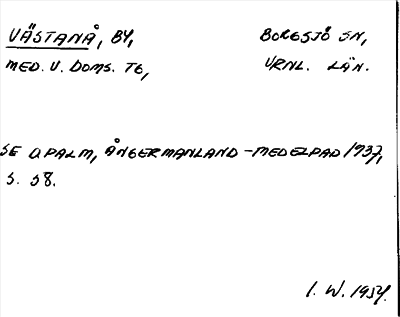 VÄSTANÅ, BY, BORGSJÖ SN,
MED. V. DOMS. TG, VRNL. LÄN.
SE O PALM, ÅNGERMANLAND-MEDELPAD 1937,
S. 58.
I. W. 1954.